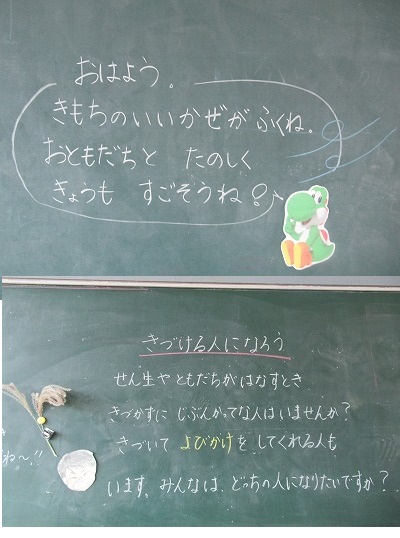 おはよう。
きもちのいいかぜがふくね。
おともだちと たのしく
きょうも すごそうね!
きづける人になろう
せん生やともだちがはなすとき
きづかずに じぶんかってな人はいませんか?
きづいて よびかけをしてくれる人も
います。みんなは、どっちの人になりたいですか?
ね〜!!